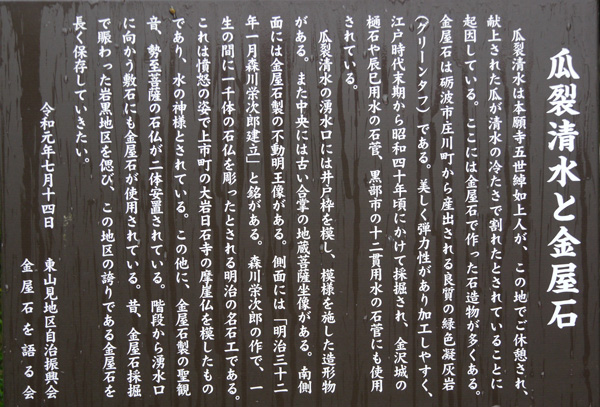 瓜裂清水と金屋石
瓜裂清水は本願寺五世綽如上人が、この地でご休憩され、
献上された瓜が清水の冷たさで割れたとされていることに
起因している。ここには金屋石で作った石造物が多くある。
金屋石は砺波市庄川町から産出される良質の緑色凝灰岩
（グリーンタフ）である。美しく弾力性があり加工しやすく、
江戸時代末期から昭和四十年頃にかけて採掘され、金沢城の
樋石や辰巳用水の石菅、黒部市の十二貫用水の石菅にも使用
されている。
瓜裂清水の湧水口には井戸枠を模し、模様を施した造形物
がある。また中央には古い合掌の地蔵菩薩坐像がある。南側
面には金屋石製の不動明王像がある。側面には「明治三十二
年一月森川学次郎建立」と銘がある。森川学次郎の作で、一
生の間に一千体の石仏を彫ったとされる明治の名石工である。
これは憤怒の姿で上市町の大岩日石寺の摩崖仏を模したもの
であり、水の神様とされている。この他に、金屋石製の聖観
音、勢至菩薩の石仏が二体安置されている。階段から湧水口
に向かう敷石にも金屋石が使用されている。昔、金屋石採掘
で賑わった岩黒地区を偲び、この地区の誇りである金屋石を
長く保存していきたい。
令和元年七月十四日
東山見地区自治振興会
金屋石を語る会